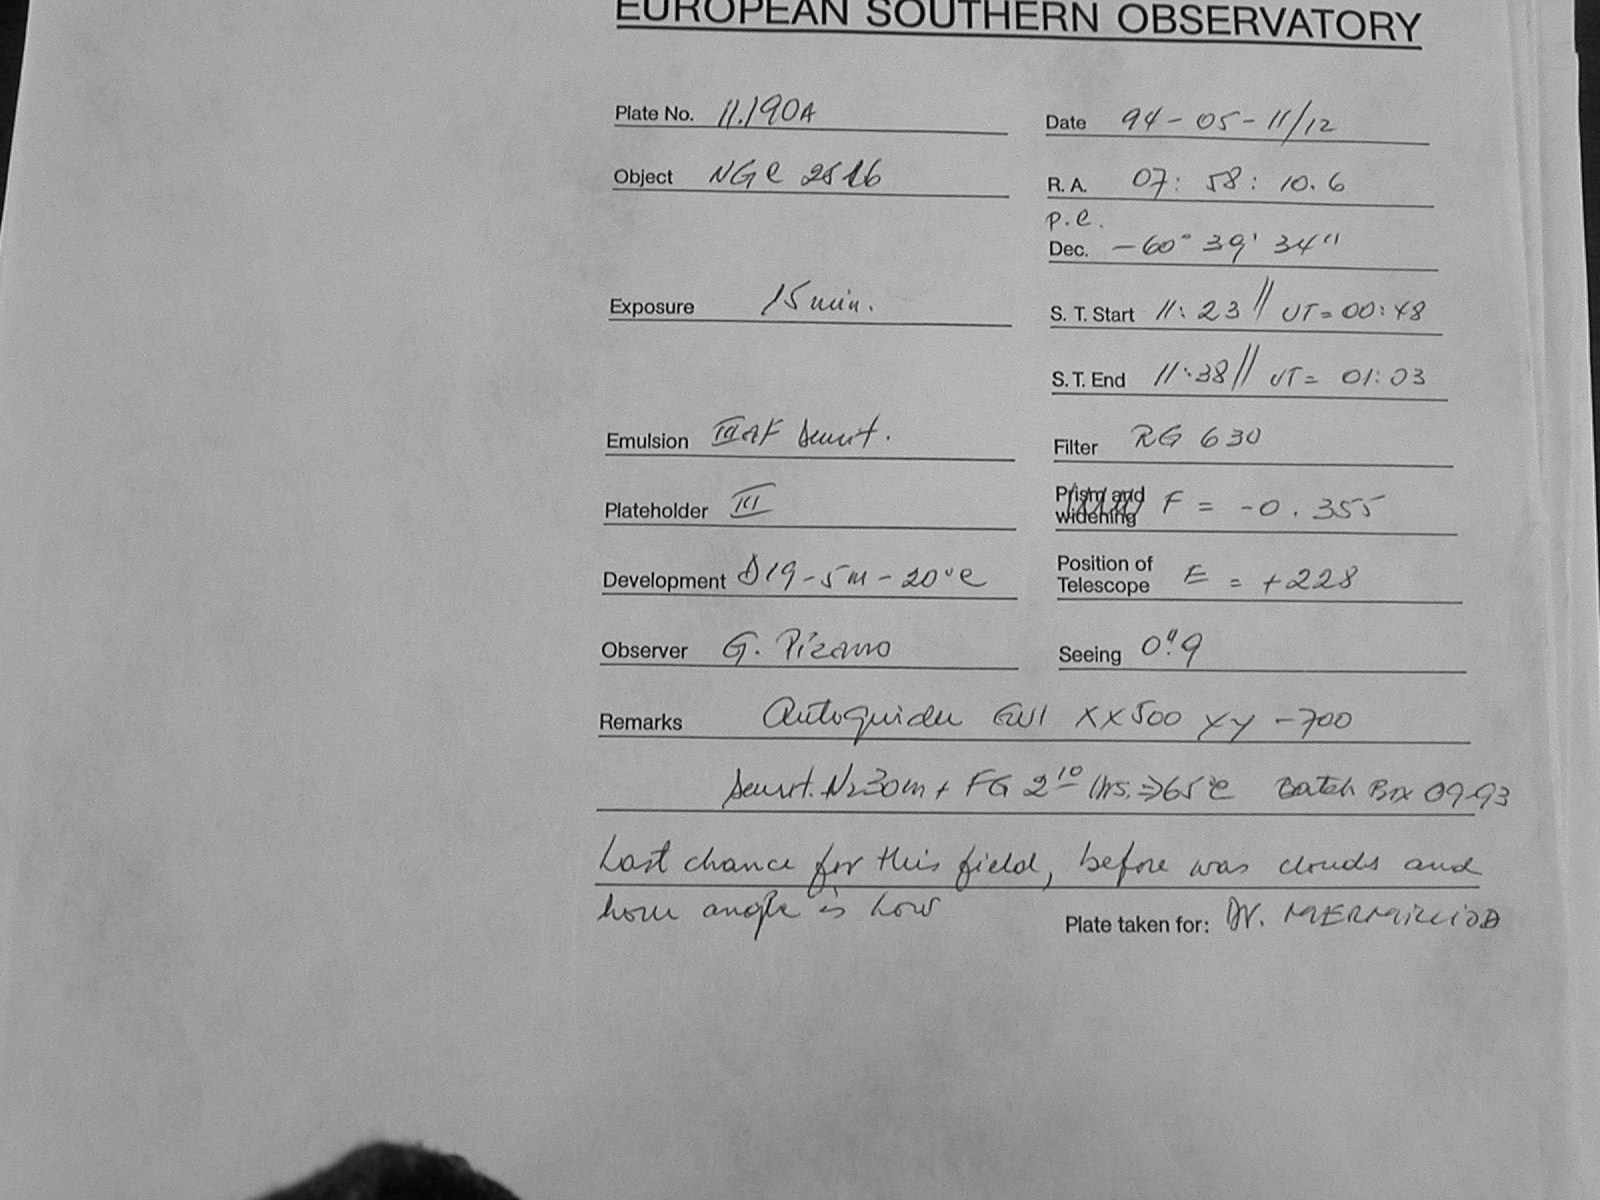 EUROPEAN SOUTHERN OBSERVATORY
Plate No. 11.190A
Date 94-05-11/12
Object NGC 2516
R. A. 07: 58: 10.6
p.e.
Dec. -60° 39' 34"
Exposure 15 min.
S. T. Start 11:23 // UT=00:48
S. T. End 11:38 // UT= 01:03
Emulsion IIIAF sensit.
Filter RG 630
Plateholder III
Prism and widening F = -0.355
Development D19-5m-20°C
Position of Telescope E = +228
Observer G. Pizarro
Seeing 0".9
Remarks Autoguider XX500 YY -700
sensit. N2 30m + FG 2 10 hrs. => 65°C Batch Box 09-93
Last chance for this field, before was clouds and
hour angle is low
Plate taken for: Dr. MERMILLIOD